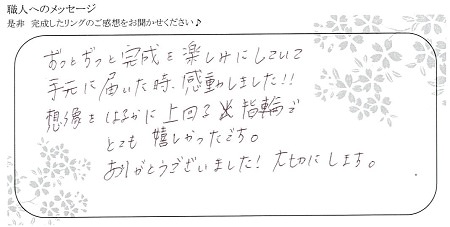 職人へのメッセージ
是非 完成したリングのご感想をお聞かせください♪
ずっとずっと完成を楽しみにしていて
手元に届いた時、感動しました!!
想像をはるかに上回る 指輪で
とても嬉しかったです。
ありがとうございました! 大切にします。